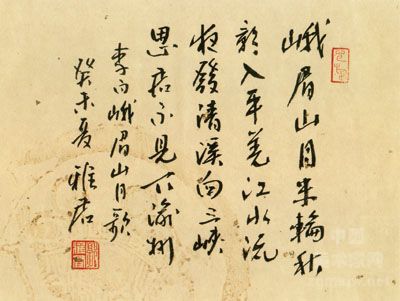 峨眉山月半輪秋
影入平羌江水流
夜發清溪向三峽
思君不見下渝州
李白峨眉山月歌
癸未夏 雅君